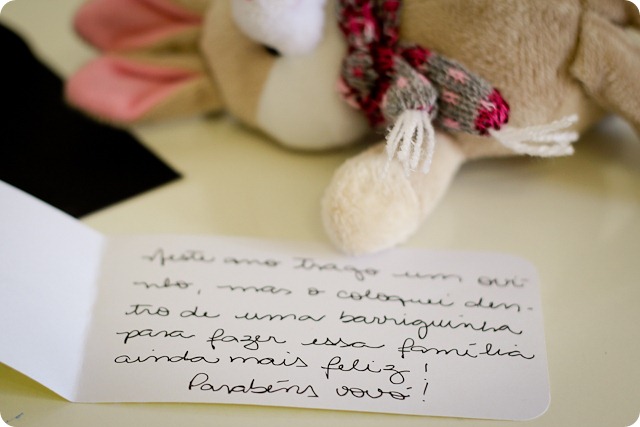 Neste ano trago um ovi-
nho, mas o coloquei den-
tro de uma barriguinha
para fazer essa família
ainda mais feliz!
Parabéns vovó!